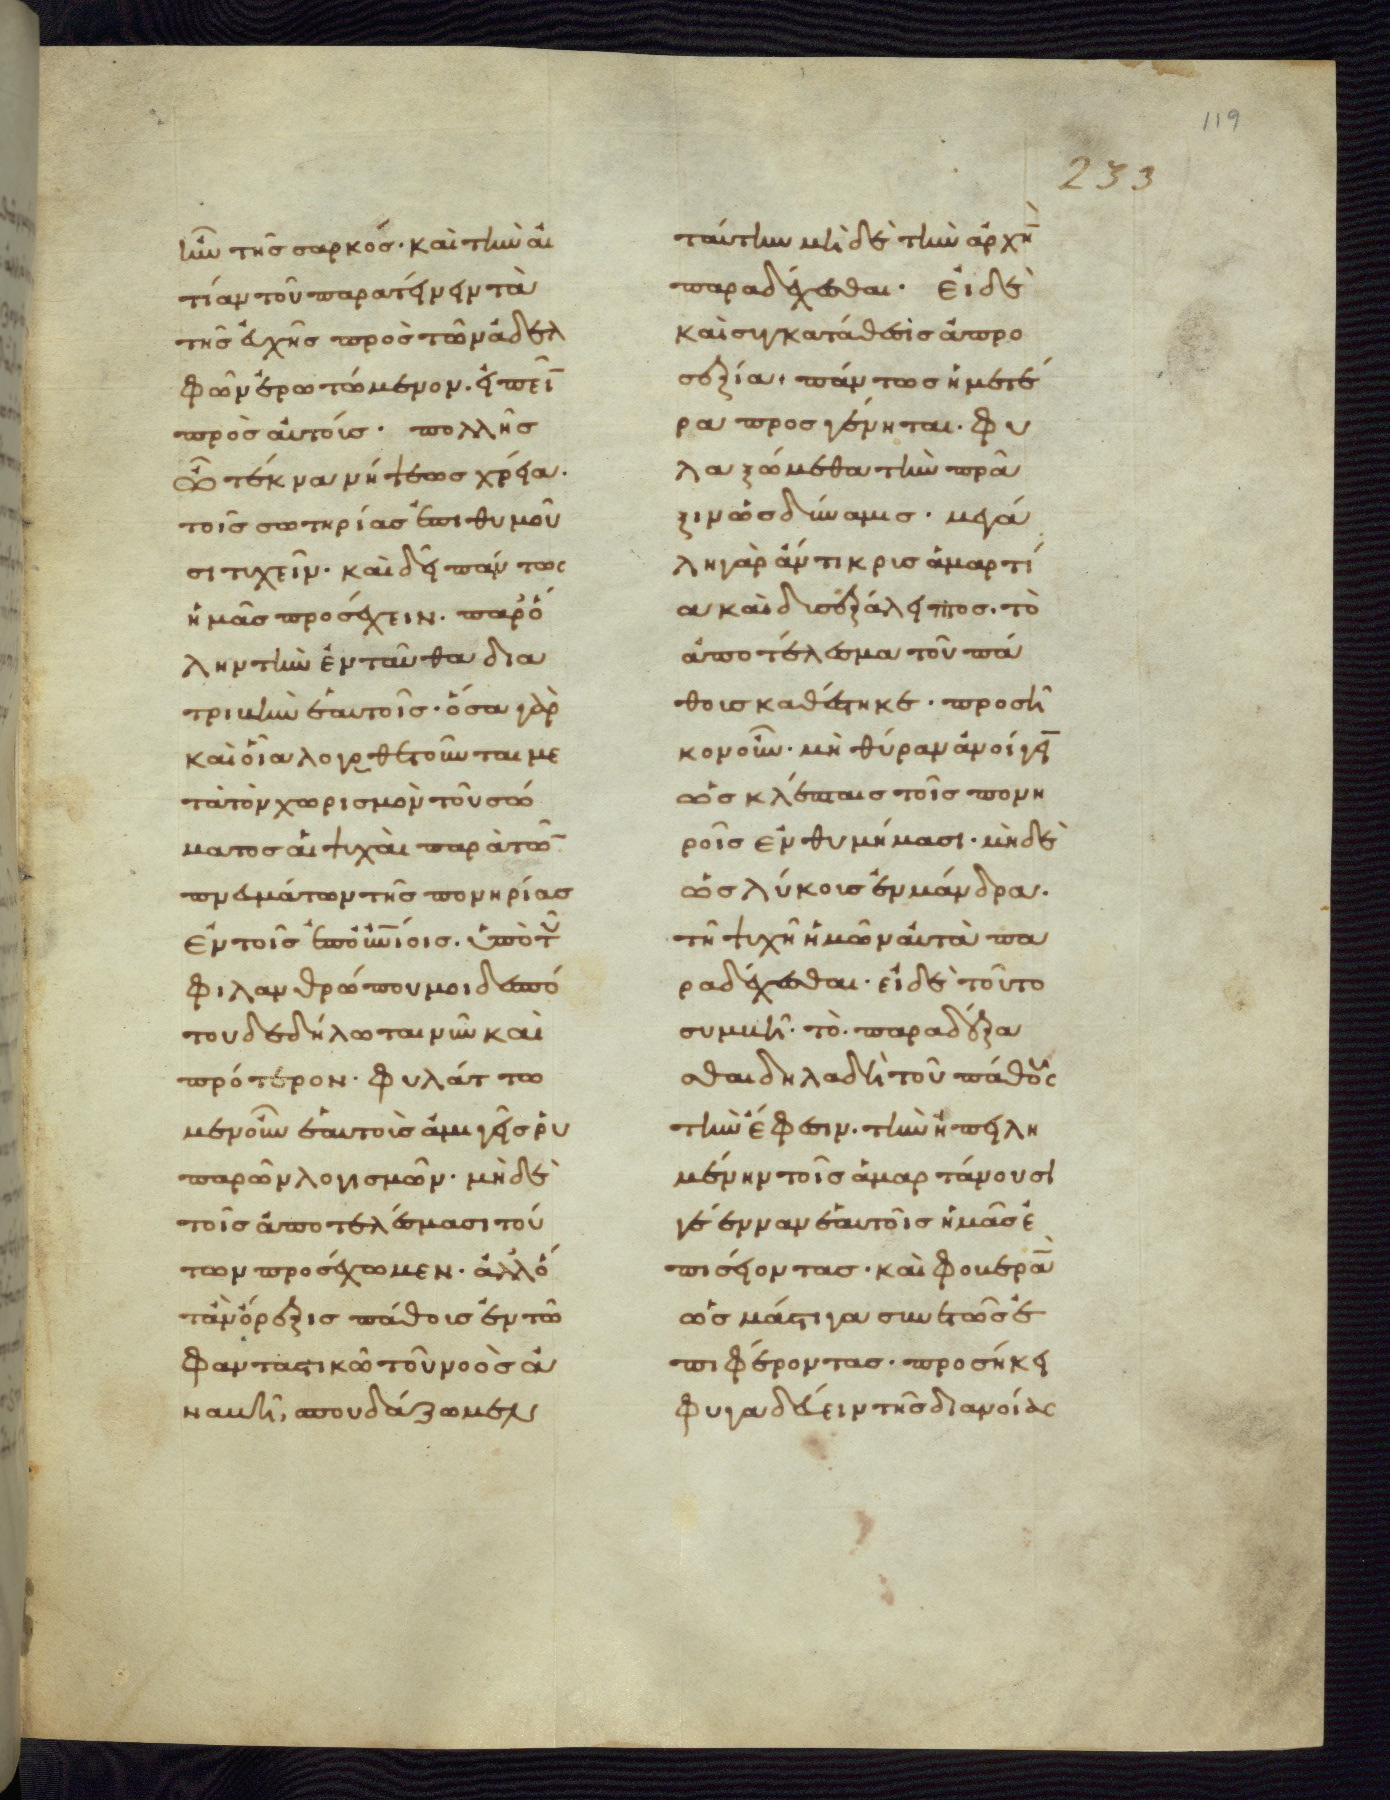 119
233
ὺν τῆς σαρκός· καὶ τὴν αἰ
τίαν τοῦ παρατείνειν τὰ
τῆς εὐχῆς πρὸς τῶν ἀδελ
φῶν ἐρωτώμενον. εἰπεῖ
πρὸς αὐτούς· πολλῆς
ὦ τέκνα νήψεως χρεία.
τοῖς σωτηρίας ἐπιθυμοῦ
σι τυχεῖν· καὶ δεῖ πάντως
ἡμᾶς προσέχειν· παρ' ὅ
λην τὴν ἐνταῦθα δια
τριβὴν ἑαυτοῖς· ὅσα γὰρ
καὶ οἷα λογοθετοῦνται με
τὰ τὸν χωρισμὸν τοῦ σώ
ματος αἱ ψυχαὶ παρὰ τῶ
πνευμάτων τῆς πονηρίας
ἐν τοῖς ἐπουρανίοις. ὑπὸ τοῦ
φιλανθρώπου μοι δεσπό
του δεδήλωται νῦν καὶ
πρότερον· φυλάττω
μεν οὖν ἑαυτοὺς ἀμιγεῖς ῥυ
παρῶν λογισμῶν· μὴ δὲ
τοῖς ἀποτελέσμασι τού
των προσέχωμεν· ἀλλ' ὅ
τ' ἂν ὄρεξις πάθους ἐν τῶ
φανταστικῶ τοῦ νοὸς ἀ
ναβῆ, σπουδάζωμεν
ταύτην μὴ δὲ τὴν ἀρχὴν
παραδέχεσθαι· εἰ δὲ
καὶ συγκατάθεσις ἀπρο
σεξία· πάντως ἡμετέ
ρα προσγένηται· φυ
λαξώμεθα τὴν πρᾶ
ξιν ὡς δύναμις· μεγά
λη γὰρ ἄντικρυς ἁμαρτί
α καὶ δυσεξάλειπτος· τὸ
ἀποτέλεσμα τοῦ πά
θους καθέστηκε· προσῆ
κον οὖν· μὴ θύραν ἀνοίγει
ὡς κλέπταις τοῖς πονη
ροῖς ἐνθυμήμασι· μὴ δὲ
ὡς λύκοις ἐν μάνδρα.
τῆ ψυχῆ ἡμῶν αὐτὰ πα
ραδέχεσθαι· εἰ δὲ τοῦτο
συμβῆ· τὸ παραδέξα
σθαι δηλαδὴ τοῦ πάθους
τὴν ἔφεσιν· τὴν ἠπειλη
μένην τοῖς ἁμαρτάνουσι
γέενναν ἑαυτοῖς ἡμᾶς ἐ
πισείοντας· καὶ φοβερὰν
ὡς μάστιγα συνετῶς ἐ
πιφέροντας· προσήκει
φυγαδεύειν τῆς διανοίας